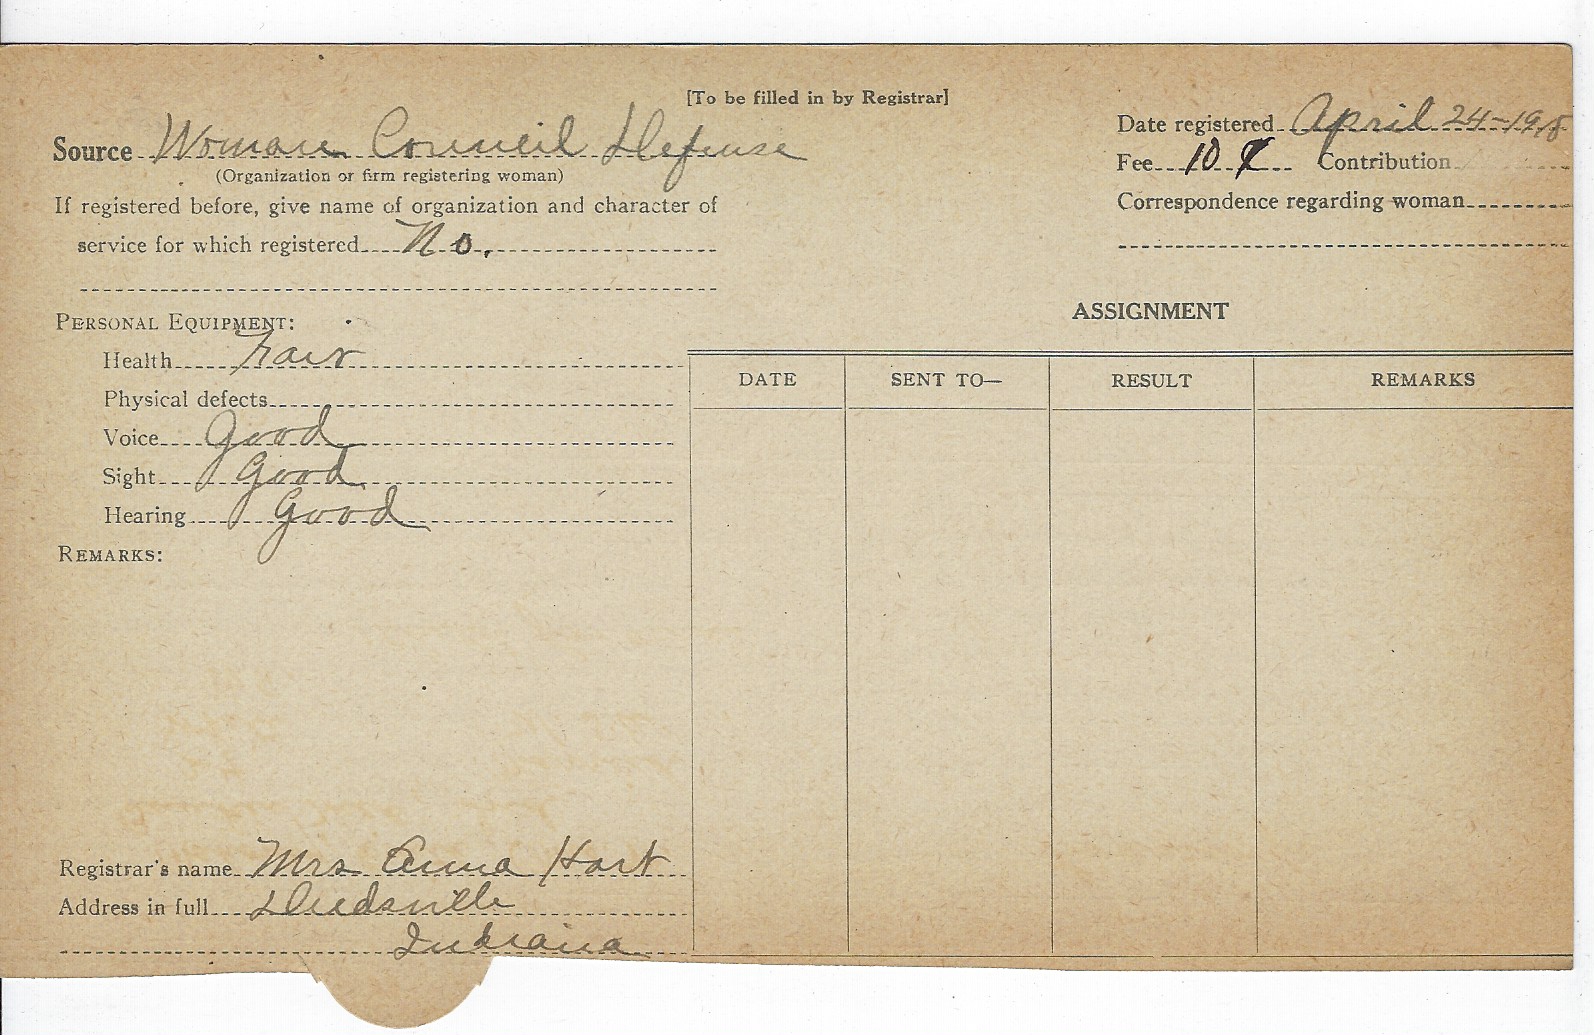 [To be filled in by Registrar]
Source Woman Council Defense
(Organization or firm registering woman)
If registered before, give name of organization and character of
service for which registered No.
Date registered April 24-1918
Fee 10 ¢ Contribution
Correspondence regarding woman
PERSONAL EQUIPMENT:
Health Fair
Physical defects
Voice Good
Sight Good
Hearing Good
REMARKS:
Registrar's name Mrs Anna Hart
Address in full Deedsville
Indiana
ASSIGNMENT
DATE SENT TO— RESULT REMARKS